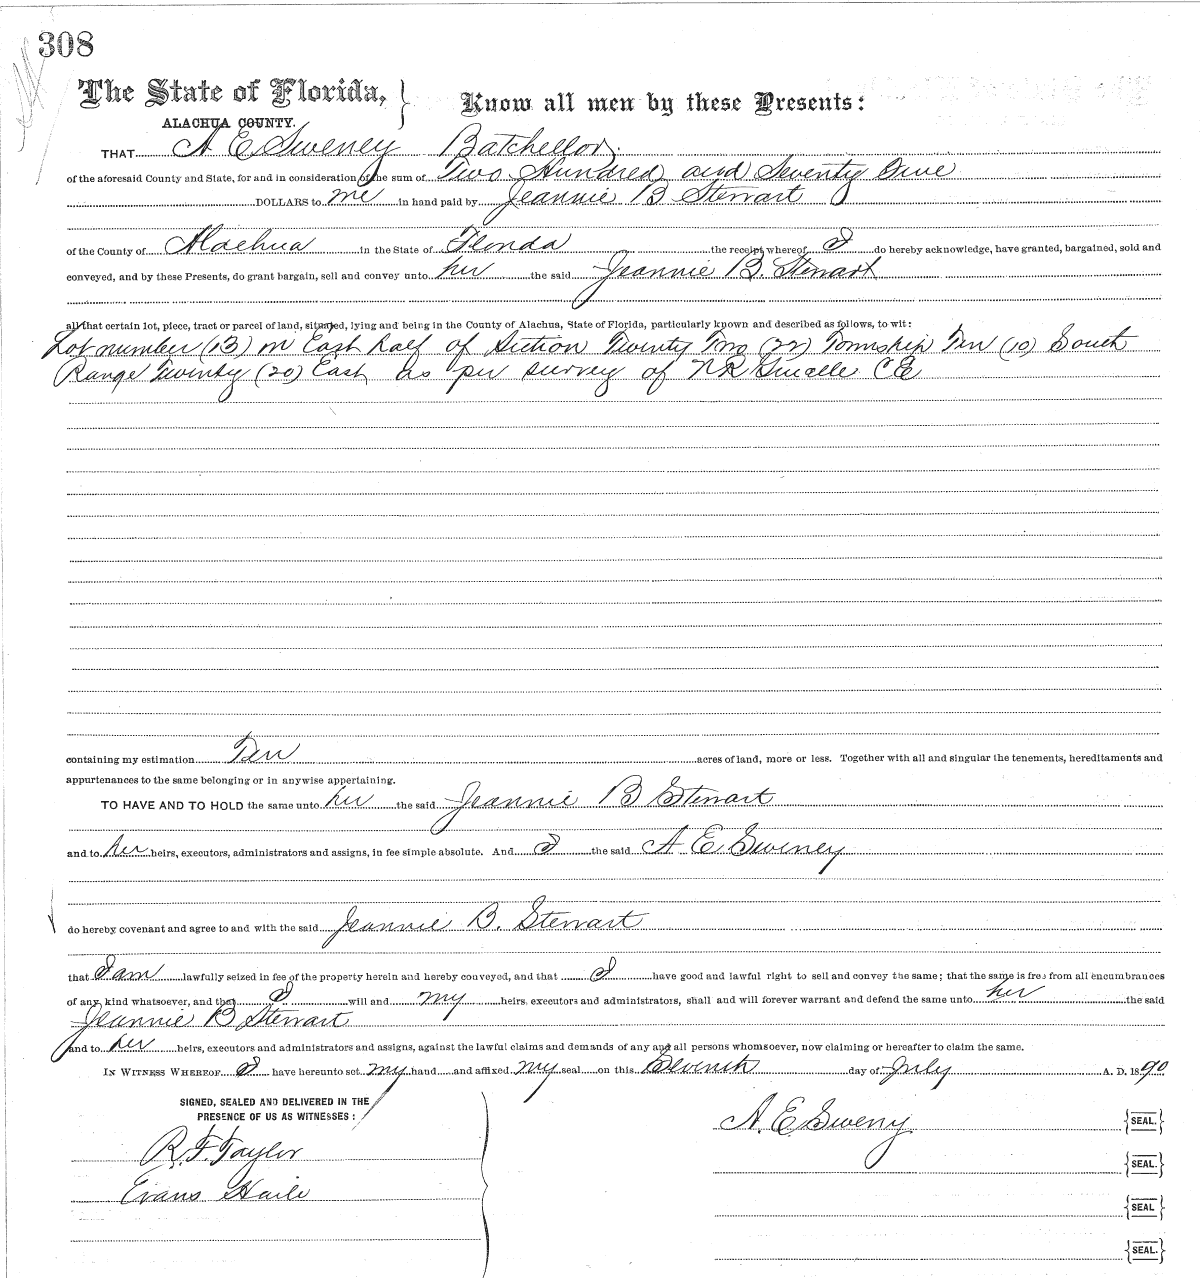 308
The State of Florida,
ALACHUA COUNTY.
Know all men by these Presents:
THAT A E Sweney Batchellor
of the aforesaid County and State, for and in consideration of the sum of Two Hundred and Seventy Five
DOLLARS to me in hand paid by Jeannie B Stewart
of the County of Alachua in the State of Florida the receipt whereof I do hereby acknowledge, have granted, bargained, sold and
conveyed, and by these Presents, do grant bargain, sell and convey unto her the said Jeannie B. Stewart
all that certain lot, piece, tract or parcel of land, situated, lying and being in the County of Alachua, State of Florida, particularly known and described as follows, to wit:
Lot number (13) in East half of Section Twenty Two (22) Township Ten (10) South
Range Twenty (20) East as per survey of CE
containing my estimation Ten acres of land, more or less. Together with all and singular the tenements, hereditaments and
appurtenances to the same belonging or in anywise appertaining.
TO HAVE AND TO HOLD the same unto her the said Jeannie B Stewart
and to her heirs, executors, administrators and assigns, in fee simple absolute. And I the said A E Sweney
do hereby covenant and agree to and with the said Jeannie B. Stewart
that I am lawfully seized in fee of the property herein and hereby conveyed, and that I have good and lawful right to sell and convey the same; that the same is free from all encumbrances
of any kind whatsoever, and that I will and my heirs. executors and administrators, shall and will forever warrant and defend the same unto her the said
Jeannie B Stewart
and to her heirs, executors and administrators and assigns, against the lawful claims and demands of any and all persons whomsoever, now claiming or hereafter to claim the same.
IN WITNESS WHEREOF I have hereunto set my hand and affixed my seal on this Seventh day of July A. D. 1890
SIGNED, SEALED AND DELIVERED IN THE
PRESENCE OF US AS WITNESSES:
A. E. Sweny SEAL.
R. F. Taylor
SEAL.
Evans Haile
SEAL
SEAL.